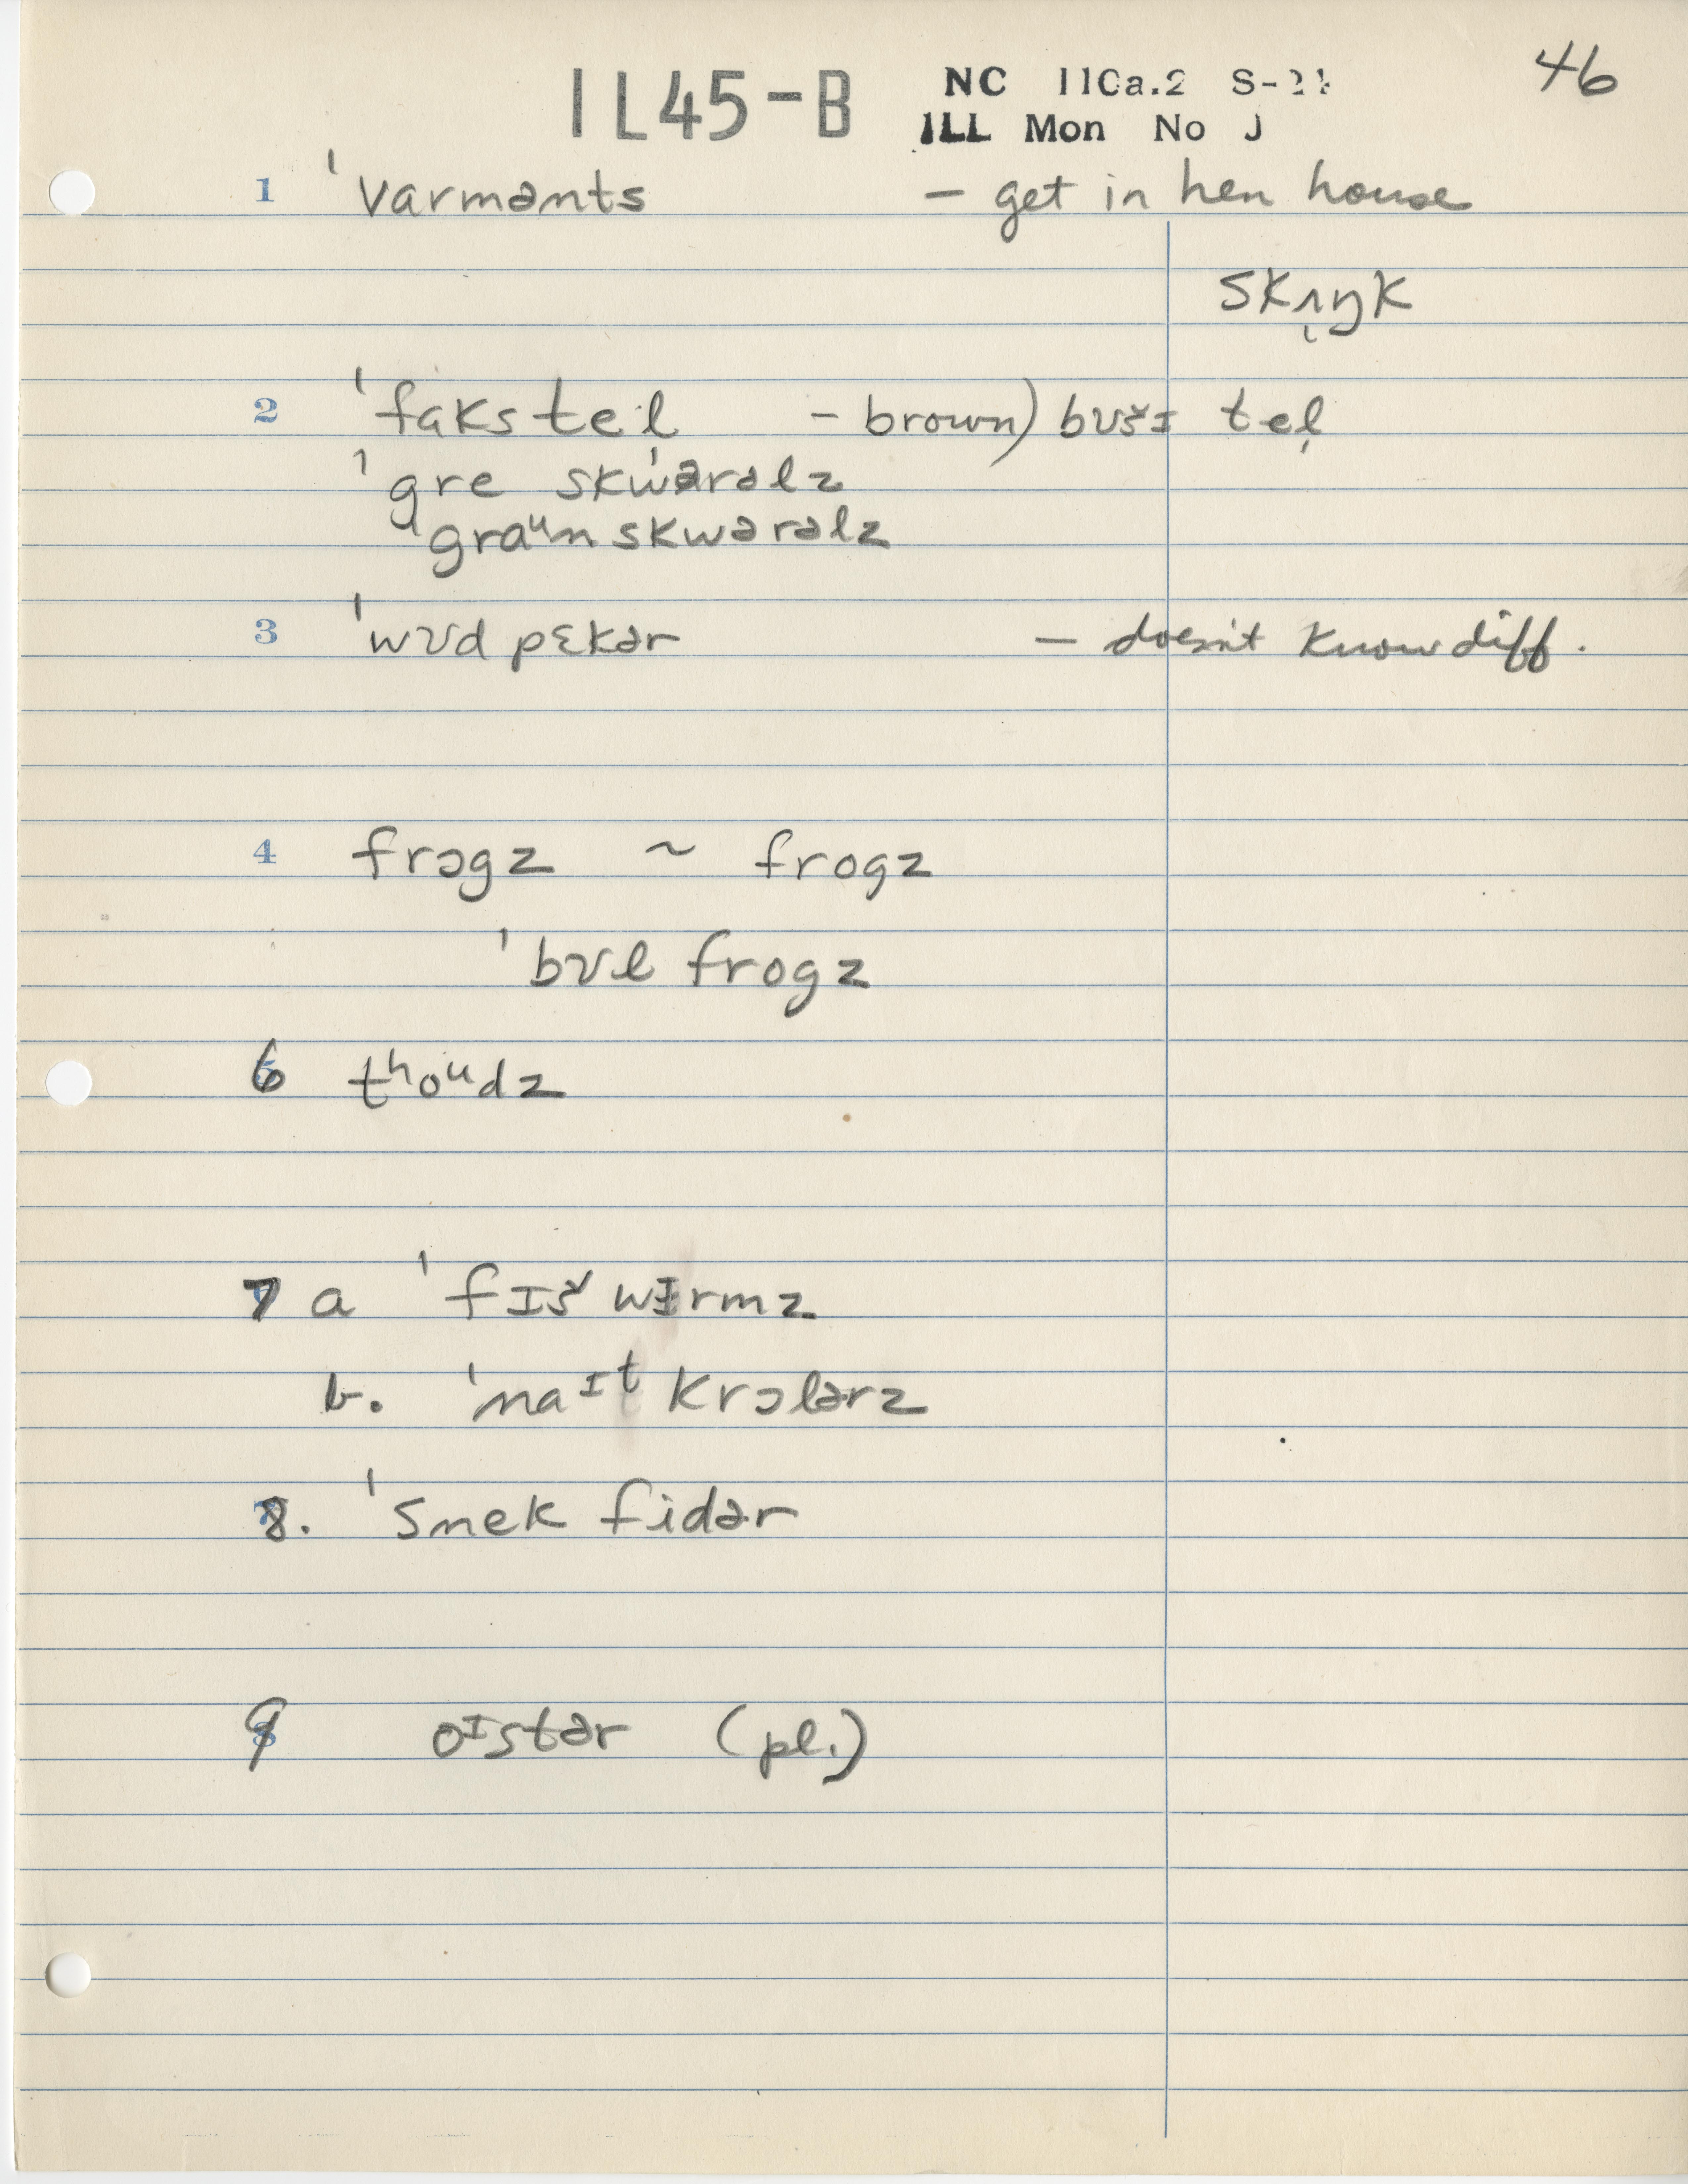 46
IL45-B NC 110a.2 S-24
ILL Mon No J
1 ˈvarmənts – get in hen house
skʌŋk
2 ˈfaks teɩl – brown) bʊšɪ tel
ˈgre skwərəlz
graᵘn skwərəlz
3 ˈwʊd pɛkər – doesn't know diff.
4 frɔgz ~ frogz
ˈbʊl frogz
6 tʰoᵘdz
7 a ˈfɪš wɪrmz
b. ˈnaᶦt krɔlərz
8. ˈsnek fidər
9 oᶦstər (pl.)